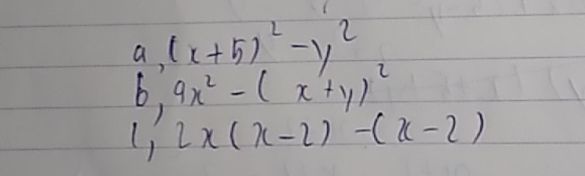 a, (x+5)² -y²
b, 9x² - ( x+y)²
1, 2x(x-2) -(x-2)